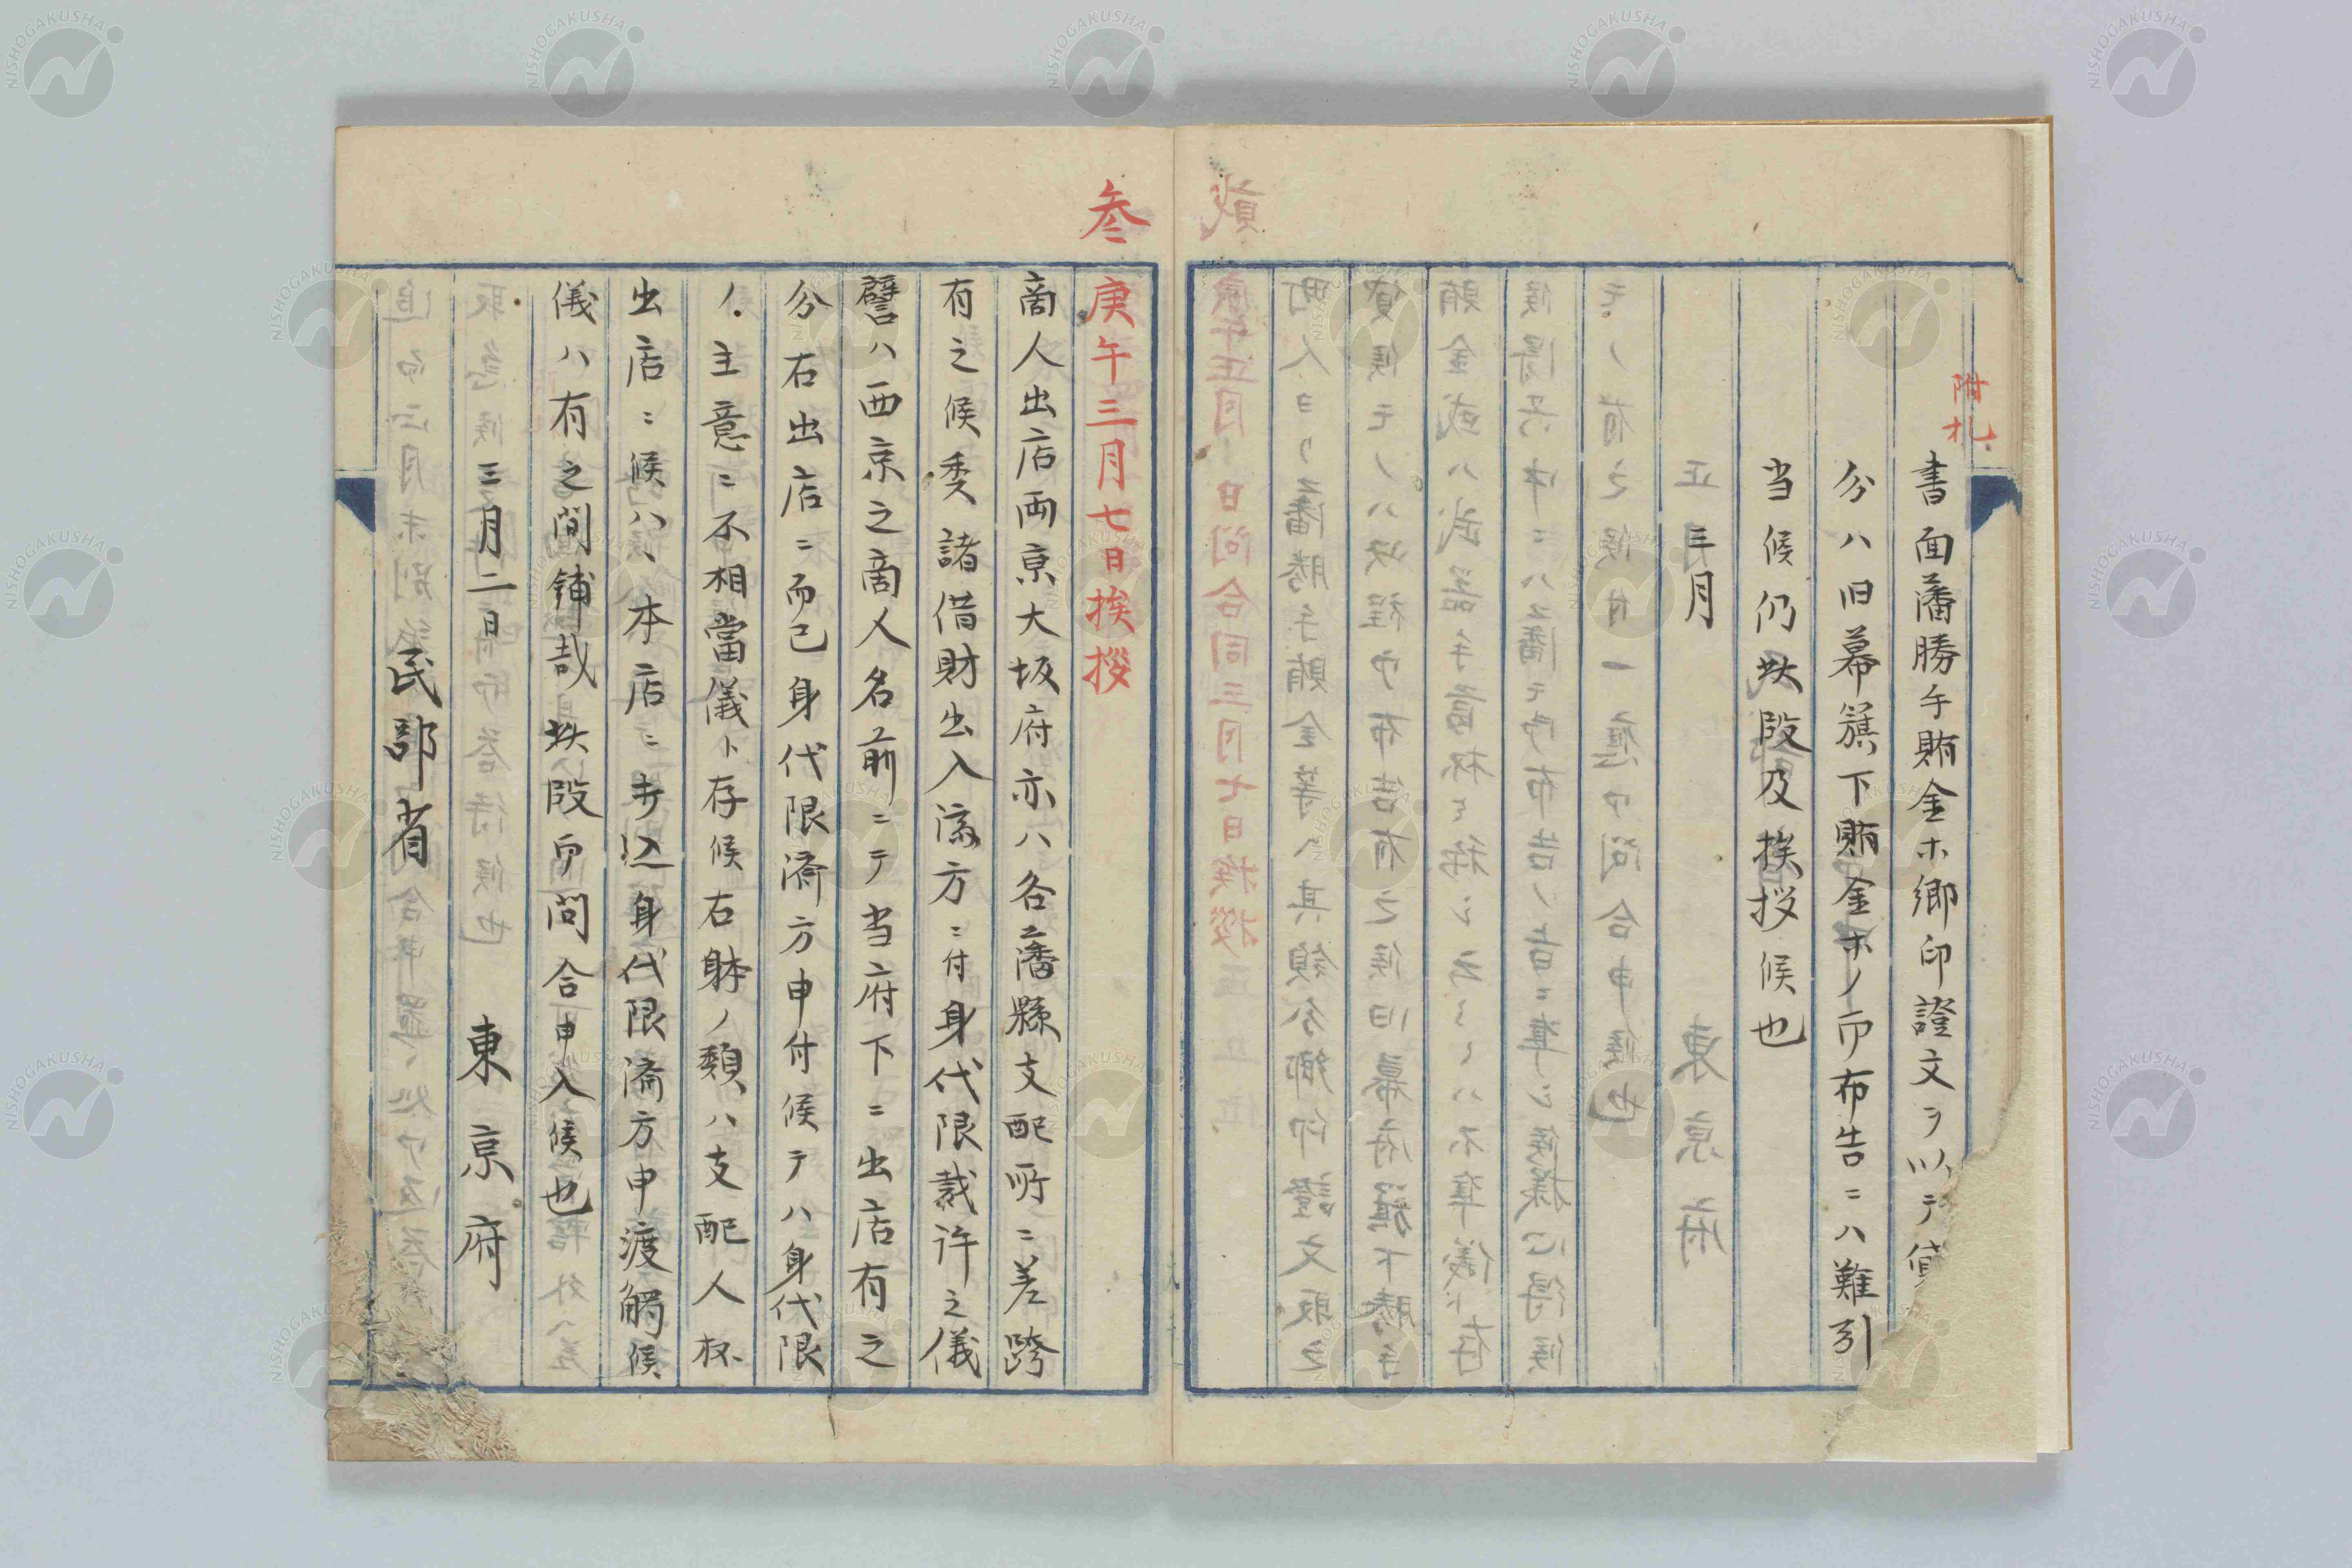 附札
書面藩勝手賄金ホ郷印證文ヲ以テ貸
分ハ旧幕籏下賄金ホノ御布告ニハ難引
当候仍此段及挨拶候也
三月
叁
庚午三月七日挨拶
商人出店両京大坂府亦ハ各藩縣支配所ニ差跨
有之候委諸借財出入済方ニ付身代限裁許之儀
譬ハ西京之商人名前ニテ当府下ニ出店有之
分右出店ニ而已身代限済方申付候テハ身代限
ノ主意ニ不相當儀ト存候右躰ノ類ハ支配人杯
出店ニ候ハヽ本店ニ引込身代限済方申渡觸候
儀ハ有之間鋪哉此段御問合申入候也
三月二日 東京府
民部省
NISHOGAKUSHA